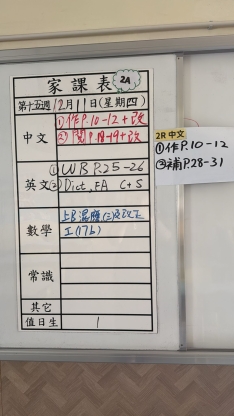 家課表 2A
第十五週 12月11日(星期四)
中文
①作P.10-12+改
②閱P.18-19+改
2R 中文
①作P.10-12
②補P.28-31
英文
① WB P.25-26
② Dict. EA C+S
數學
工(17b)
常識
其它
值日生 1